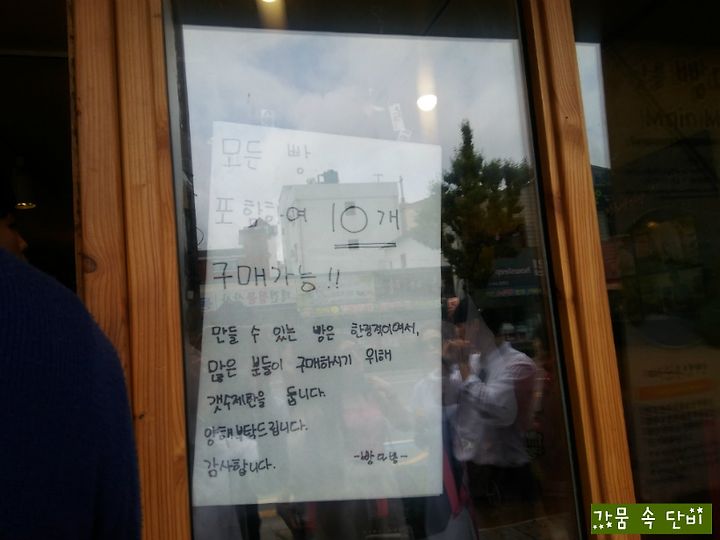 모든 빵
포함하여 10개
구매가능!!
만들 수 있는 빵은 한정적이여서,
많은 분들이 구매하시기 위해
갯수제한을 둡니다.
양해부탁드립니다.
감사합니다.
가뭄 속 단비